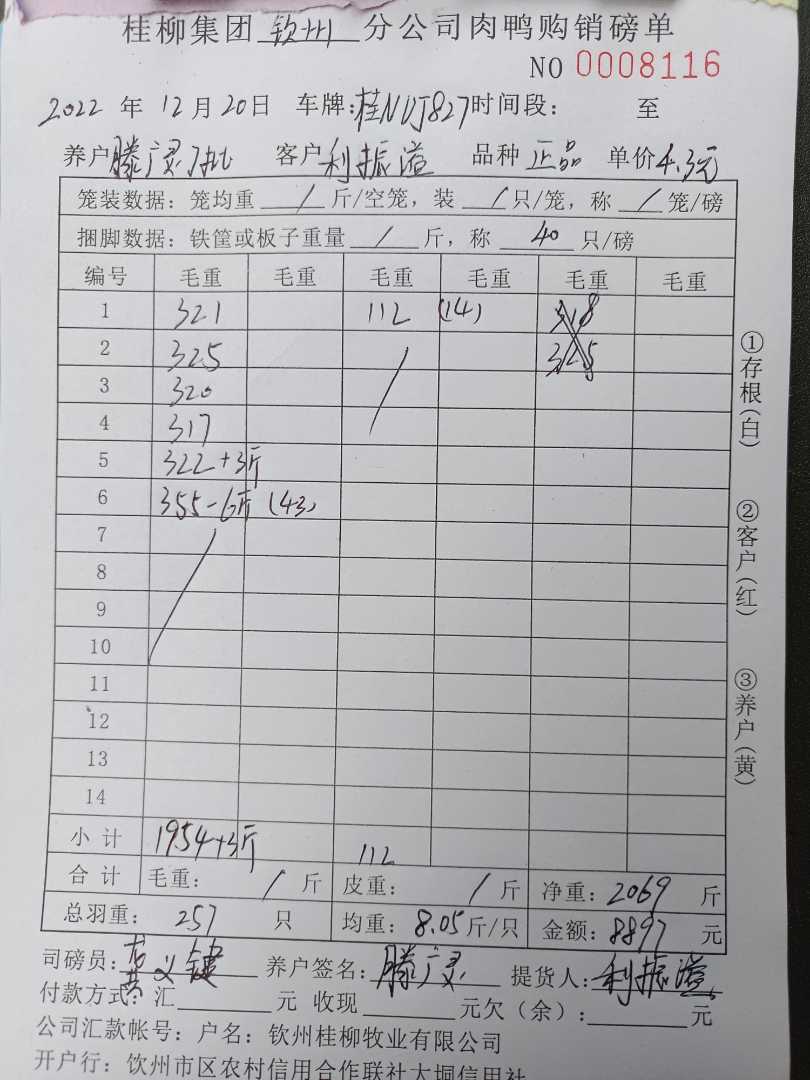 桂柳集团 钦州 分公司肉鸭购销磅单
NO 0008116
2022 年 12月 20日 车牌:桂NUJ827 时间段: 至
养户 滕广灵 客户 利振溢 品种 正品 单价 4.3元
笼装数据: 笼均重 / 斤/空笼, 装 / 只/笼, 称 / 笼/磅
捆脚数据: 铁筐或板子重量 / 斤, 称 40 只/磅
编号 毛重 毛重 毛重 毛重 毛重 毛重
1 321 112 (14) 318
2 325 325
3 320
4 317
5 322+3斤
6 355-6斤 (43)
7
8
9
10
11
12
13
14
小 计 1954+3斤 112
合 计 毛重: / 斤 皮重: / 斤 净重: 2069 斤
总羽重: 257 只 均重: 8.05斤/只 金额: 8897 元
司磅员: 义键 养户签名: 滕广灵 提货人: 利振溢
付款方式: 汇 元 收现 元欠(余): 元
公司汇款帐号: 户名: 钦州桂柳牧业有限公司
开户行: 钦州市区农村信用合作联社大垌信用社
①存根(白)
②客户(红)
③养户(黄)